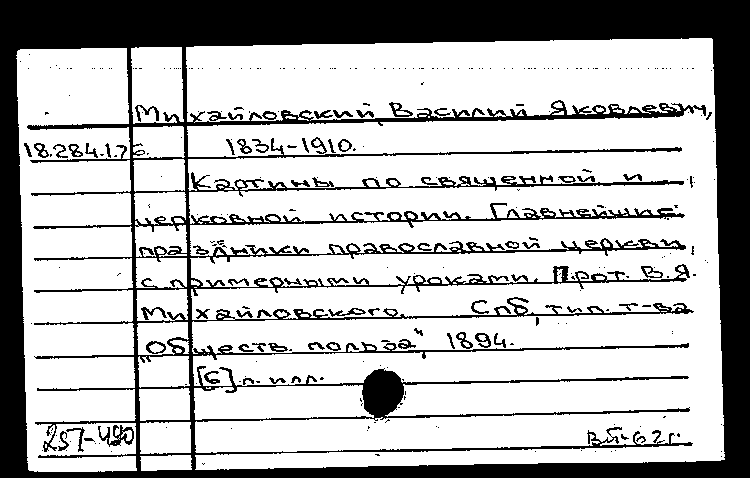 Михайловский, Василий Яковлевич,
18.284.1.75. 1834-1910.
Картины по священной и
церковной истории. Главнейшие
праздники православной церкви,
с примерными уроками. Прот. В.Я.
Михайловского. Спб, тип. т-ва
„Обществ. польза", 1894.
[6] л. илл.
257-490
62г.